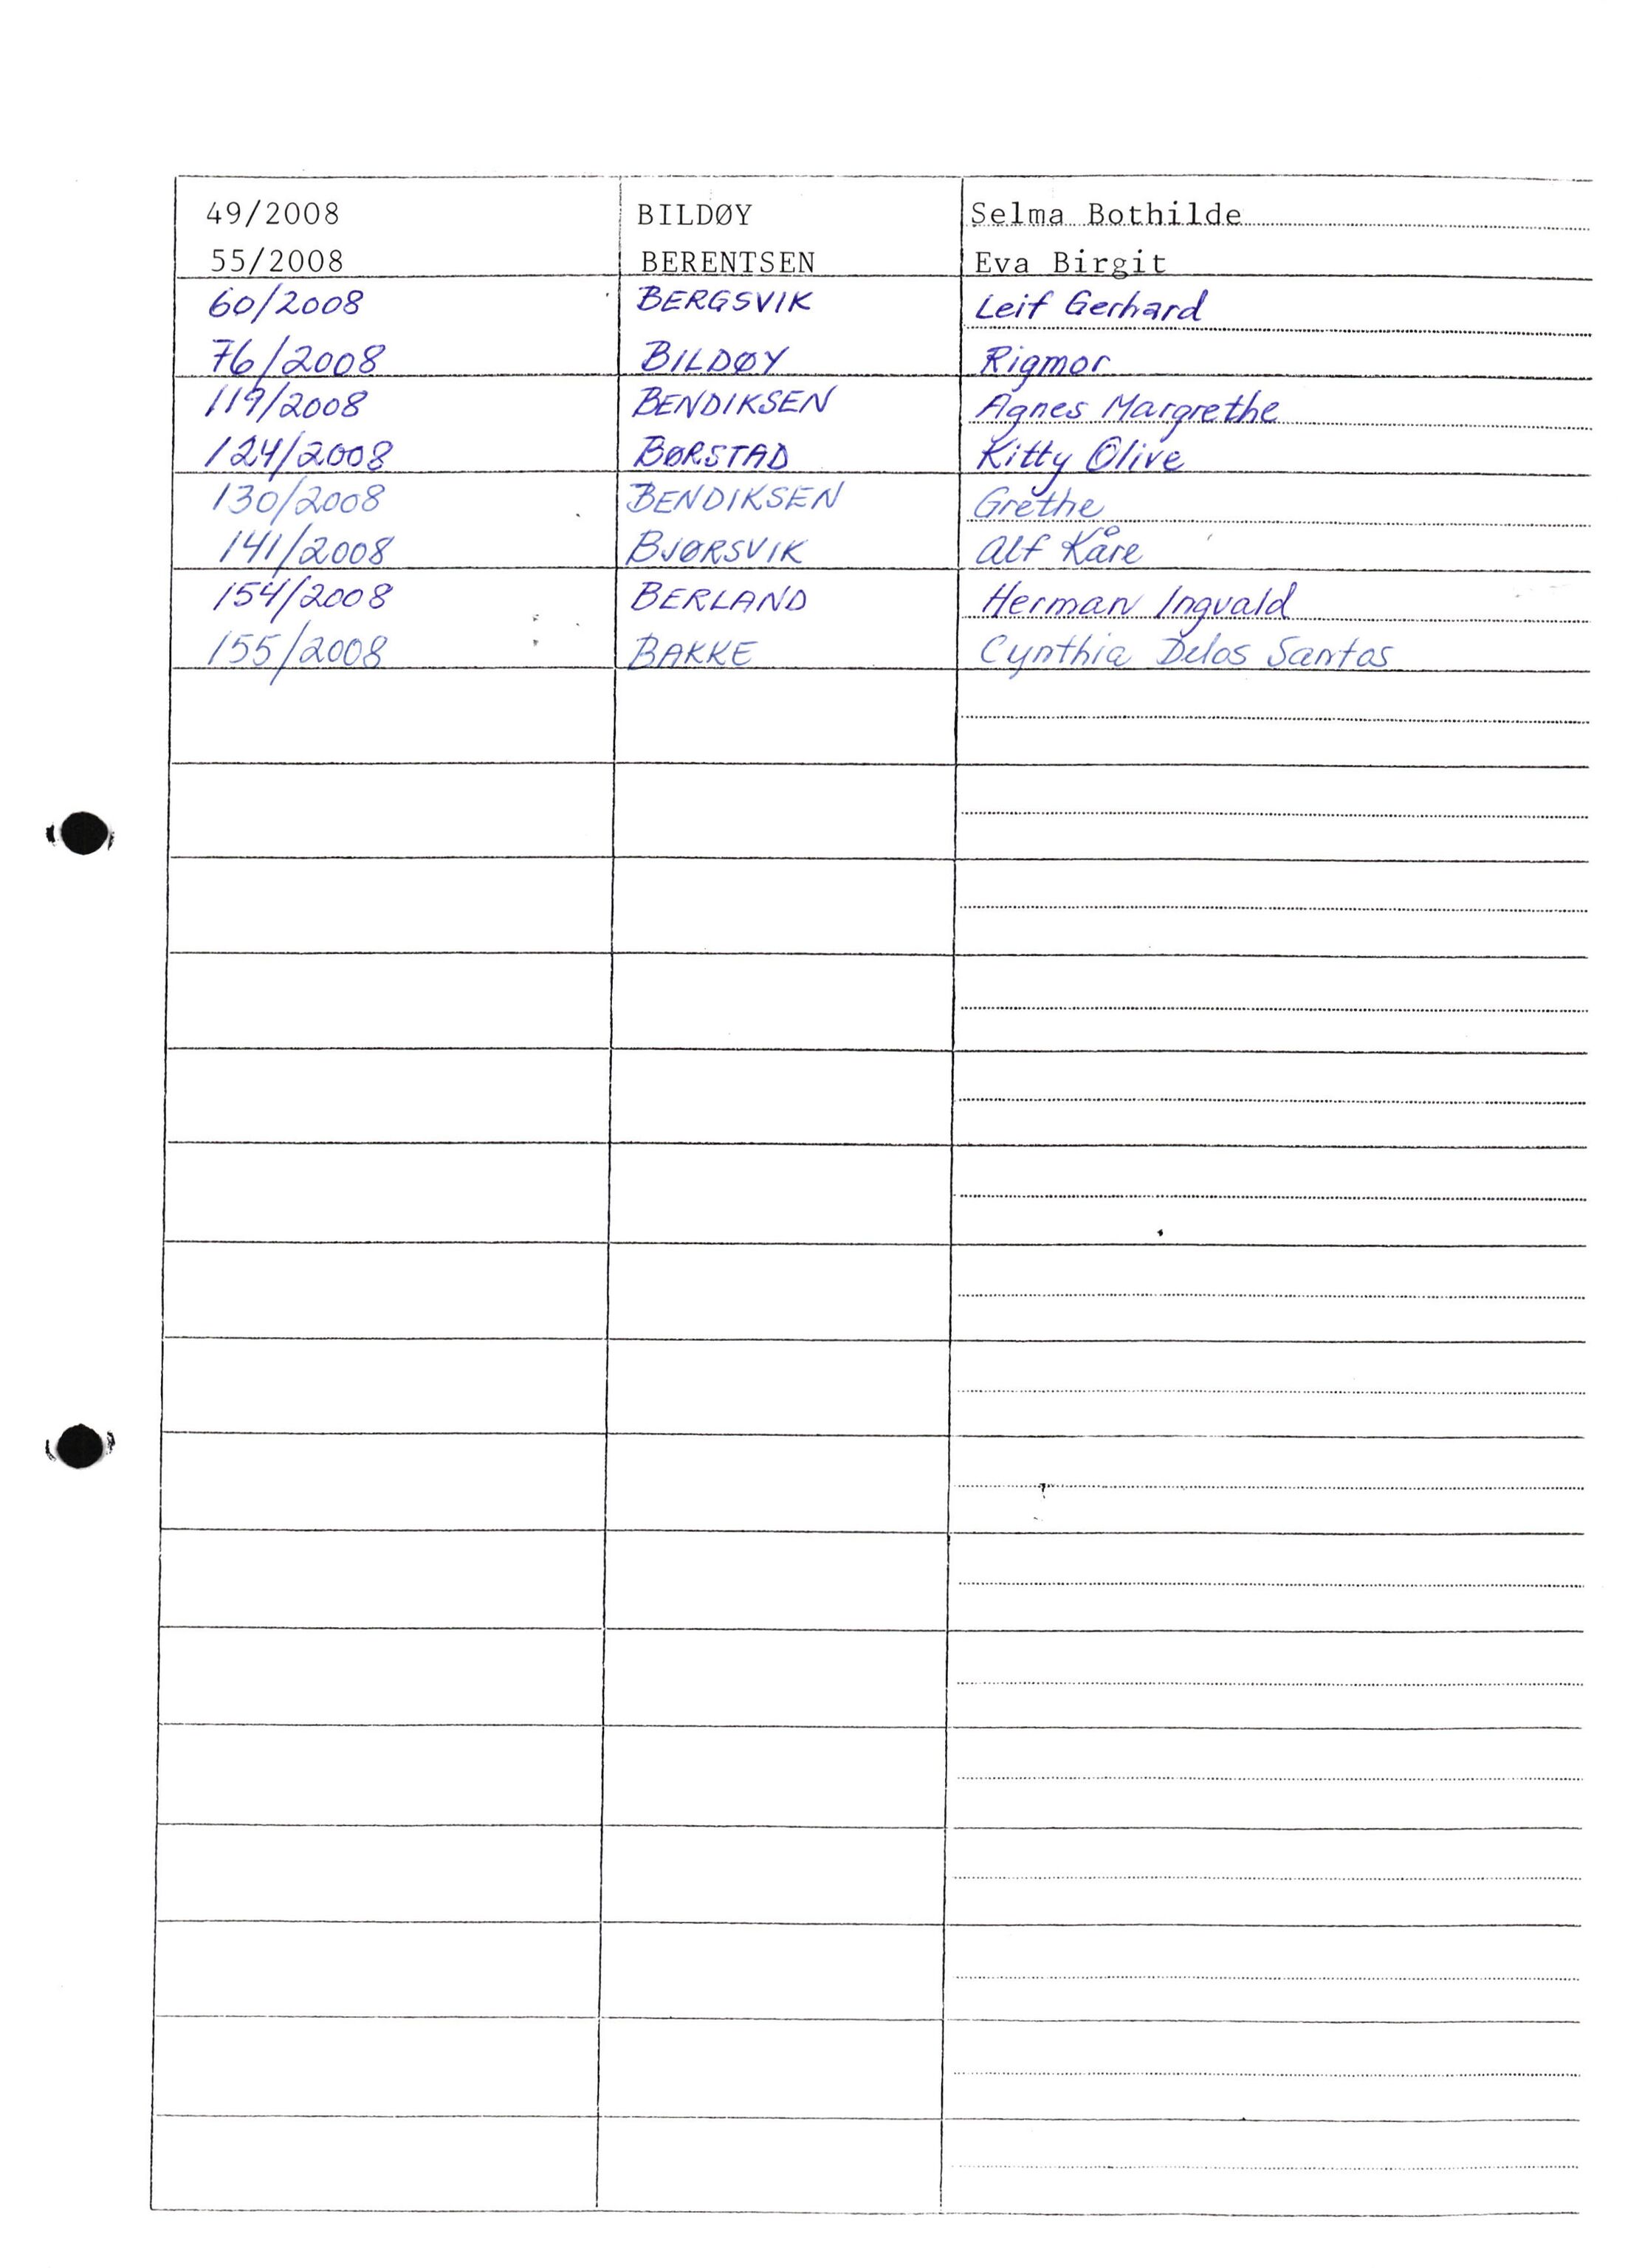 49/2008 BILDØY Selma Bothilde
55/2008 BERENTSEN Eva Birgit
60/2008 BERGSVIK Leif Gerhard
76/2008 BILDØY Rigmor
119/2008 BENDIKSEN Agnes Margrethe
124/2008 BØRSTAD Kitty Olive
130/2008 BENDIKSEN Grethe
141/2008 BJØRSVIK Alf Kåre
154/2008 BERLAND Herman Ingvald
155/2008 BAKKE Cynthia Delos Santos